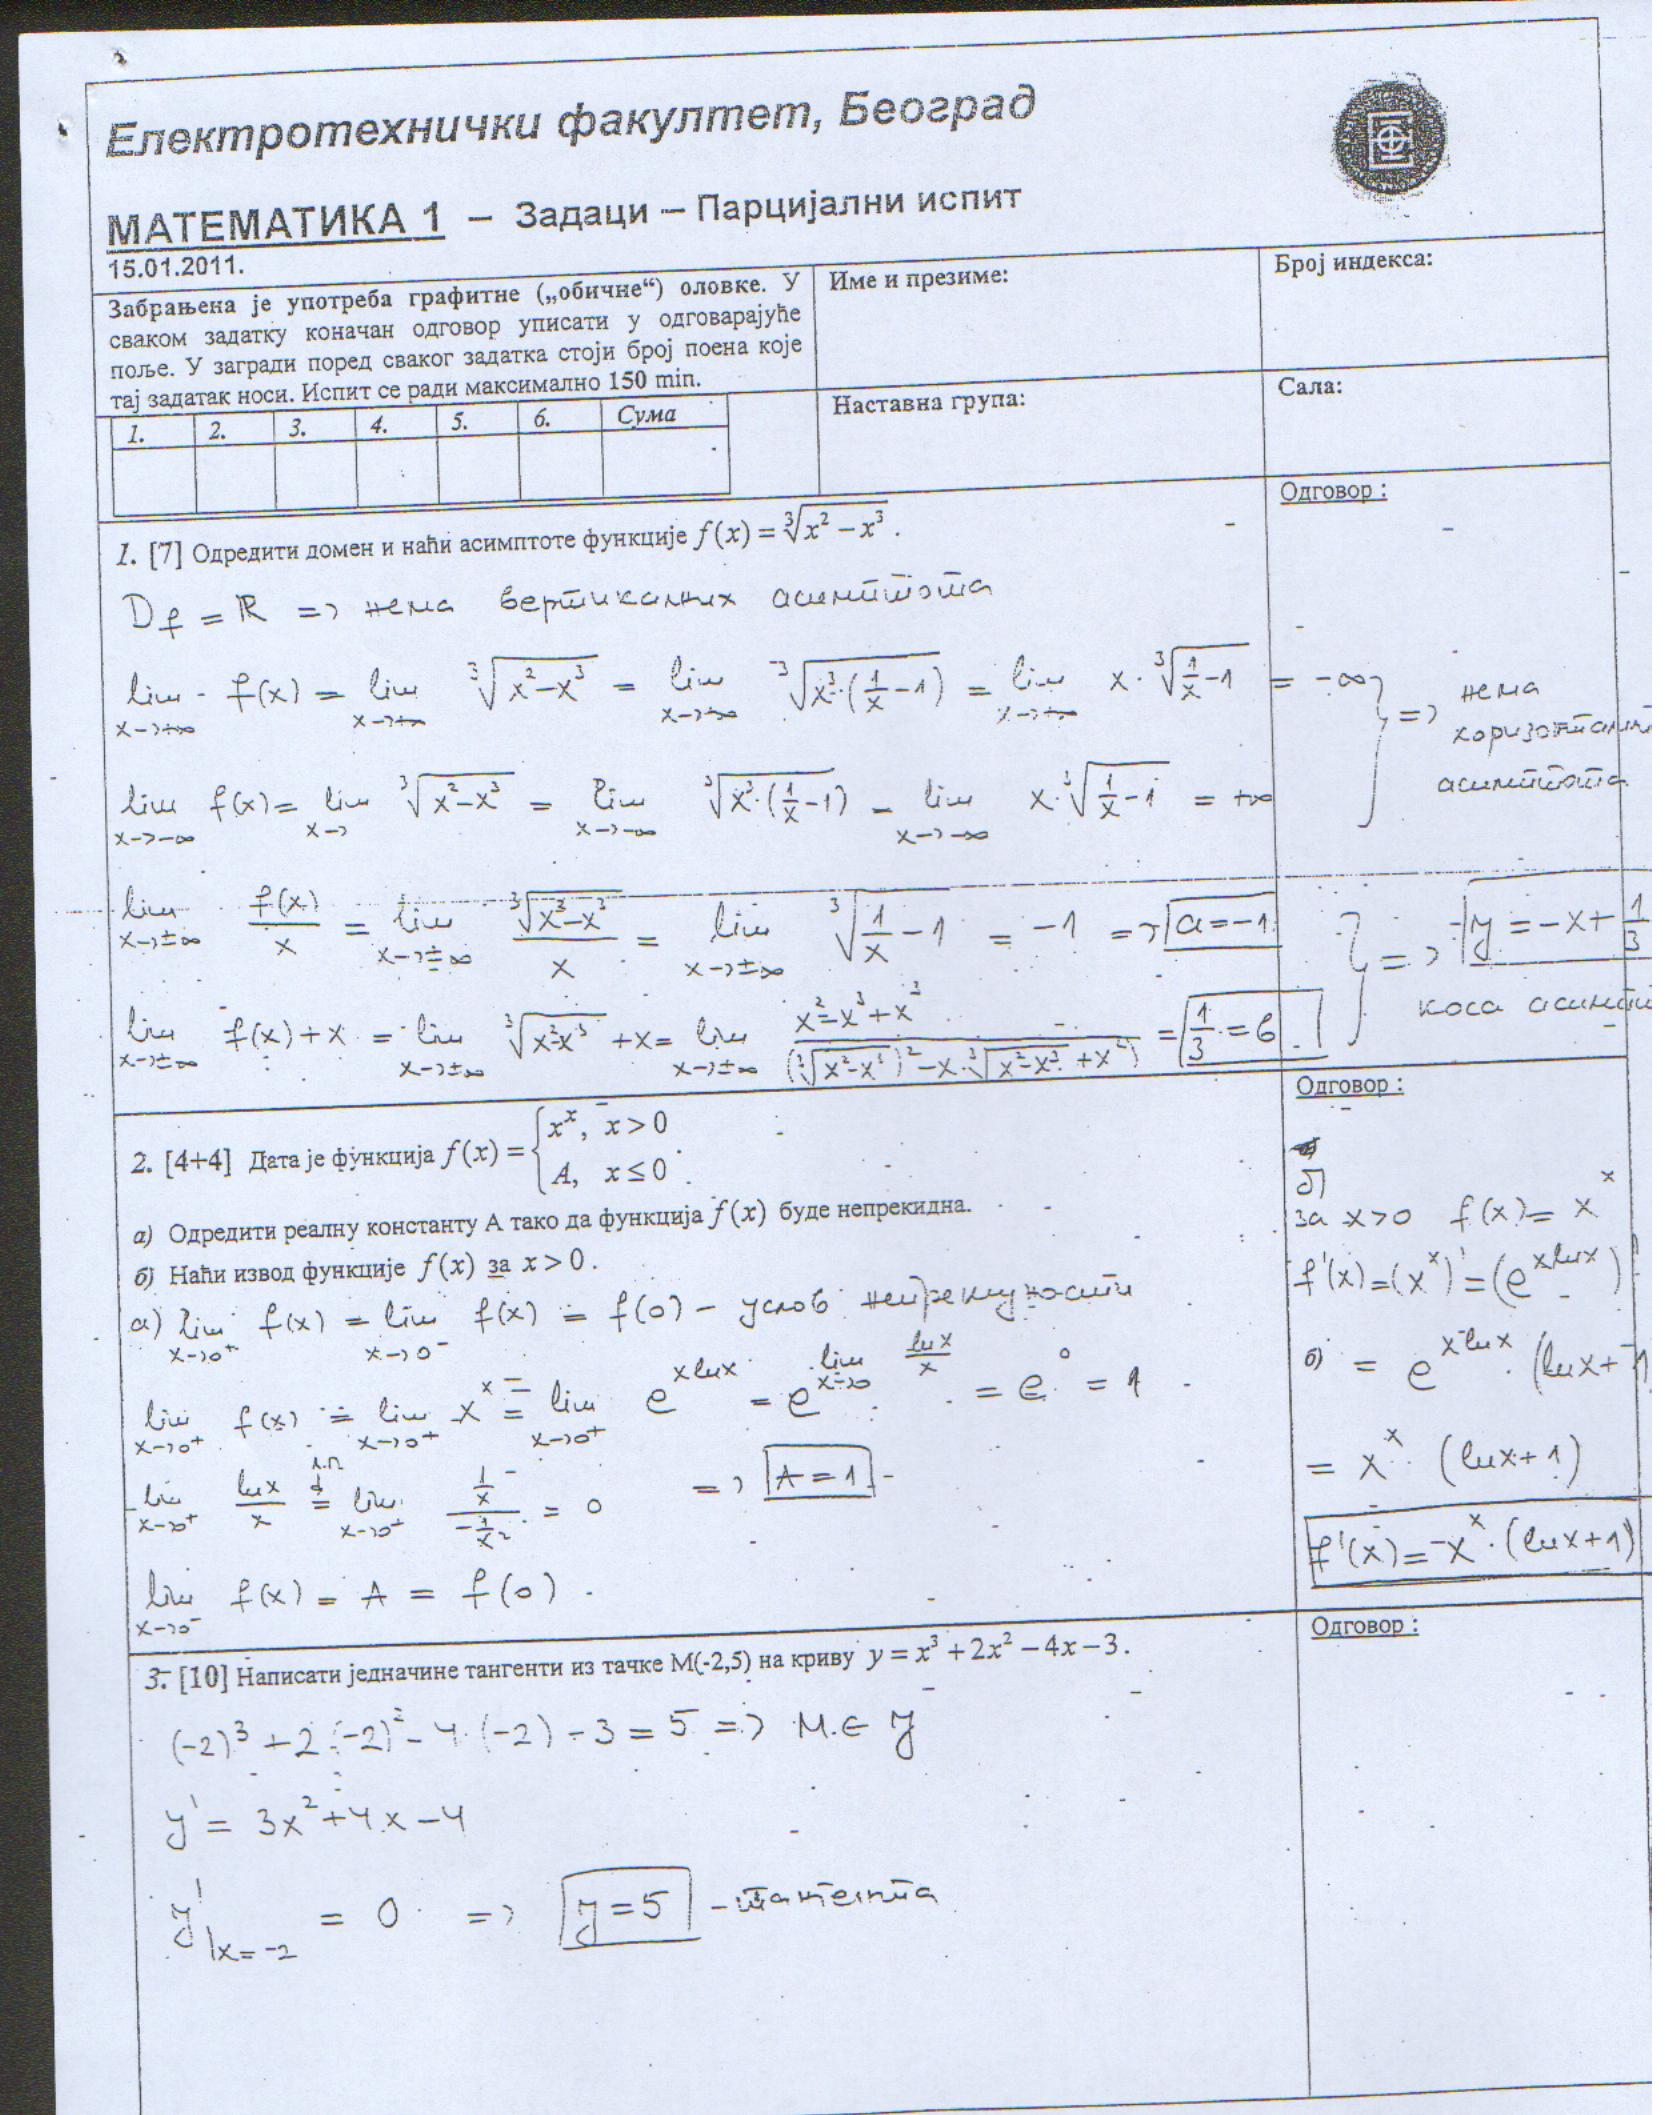 Електротехнички факултет, Београд
МАТЕМАТИКА 1 – Задаци – Парцијални испит
15.01.2011.
Забрањена је употреба графитне („обичне“) оловке. У
сваком задатку коначан одговор уписати у одговарајуће
поље. У загради поред сваког задатка стоји број поена које
тај задатак носи. Испит се ради максимално 150 min.
Име и презиме:
Број индекса:
Наставна група:
Сала:
1. 2. 3. 4. 5. 6. Сума
Одговор :
1. [7] Одредити домен и наћи асимптоте функције f(x) = ∛(x² − x³) .
Df = ℝ => нема вертикалних асимптота
lim x→+∞ f(x) = lim x→+∞ ∛(x²−x³) = lim x→+∞ ∛(x³·(1/x −1)) = lim x→+∞ x·∛(1/x −1) = −∞
lim x→−∞ f(x) = lim x→ ∛(x²−x³) = lim x→−∞ ∛(x³·(1/x −1)) = lim x→−∞ x·∛(1/x −1) = +∞
} => нема
хоризонталних
асимптота
lim x→±∞ f(x)/x = lim x→±∞ ∛(x²−x³)/x = lim x→±∞ ∛(1/x −1) = −1 => a = −1
lim x→±∞ f(x)+x = lim x→±∞ ∛(x²−x³) +x = lim x→±∞ (x²−x³+x³)/((∛(x²−x³))²−x·∛(x²−x³)+x²) = 1/3 = b
} => y = −x + 1/3
коса
Одговор :
2. [4+4] Дата је функција f(x) = { x^x, x > 0
A, x ≤ 0 .
а) Одредити реалну константу А тако да функција f(x) буде непрекидна.
б) Наћи извод функције f(x) за x > 0 .
а) lim x→0⁺ f(x) = lim x→0⁻ f(x) = f(0) – услов непрекидности
lim x→0⁺ f(x) = lim x→0⁺ x^x = lim x→0⁺ e^(x ln x) = e^(lim x→0 ln x/x) = e^0 = 1
lim x→0⁺ ln x/x = lim x→0⁺ (1/x)/(−1/x²) = 0 => A = 1
lim x→0⁻ f(x) = A = f(0)
б)
за x>0 f(x) = x^x
f'(x) = (x^x)' = (e^(x ln x))'
б) = e^(x ln x) · (ln x + 1
= x^x · (ln x + 1)
f'(x) = x^x · (ln x + 1)
Одговор :
3. [10] Написати једначине тангенти из тачке М(-2,5) на криву y = x³ + 2x² − 4x − 3 .
(−2)³ + 2·(−2)² − 4·(−2) − 3 = 5 => M ∈ y
y' = 3x² + 4x − 4
y'|x=−2 = 0 => y = 5 – тангента